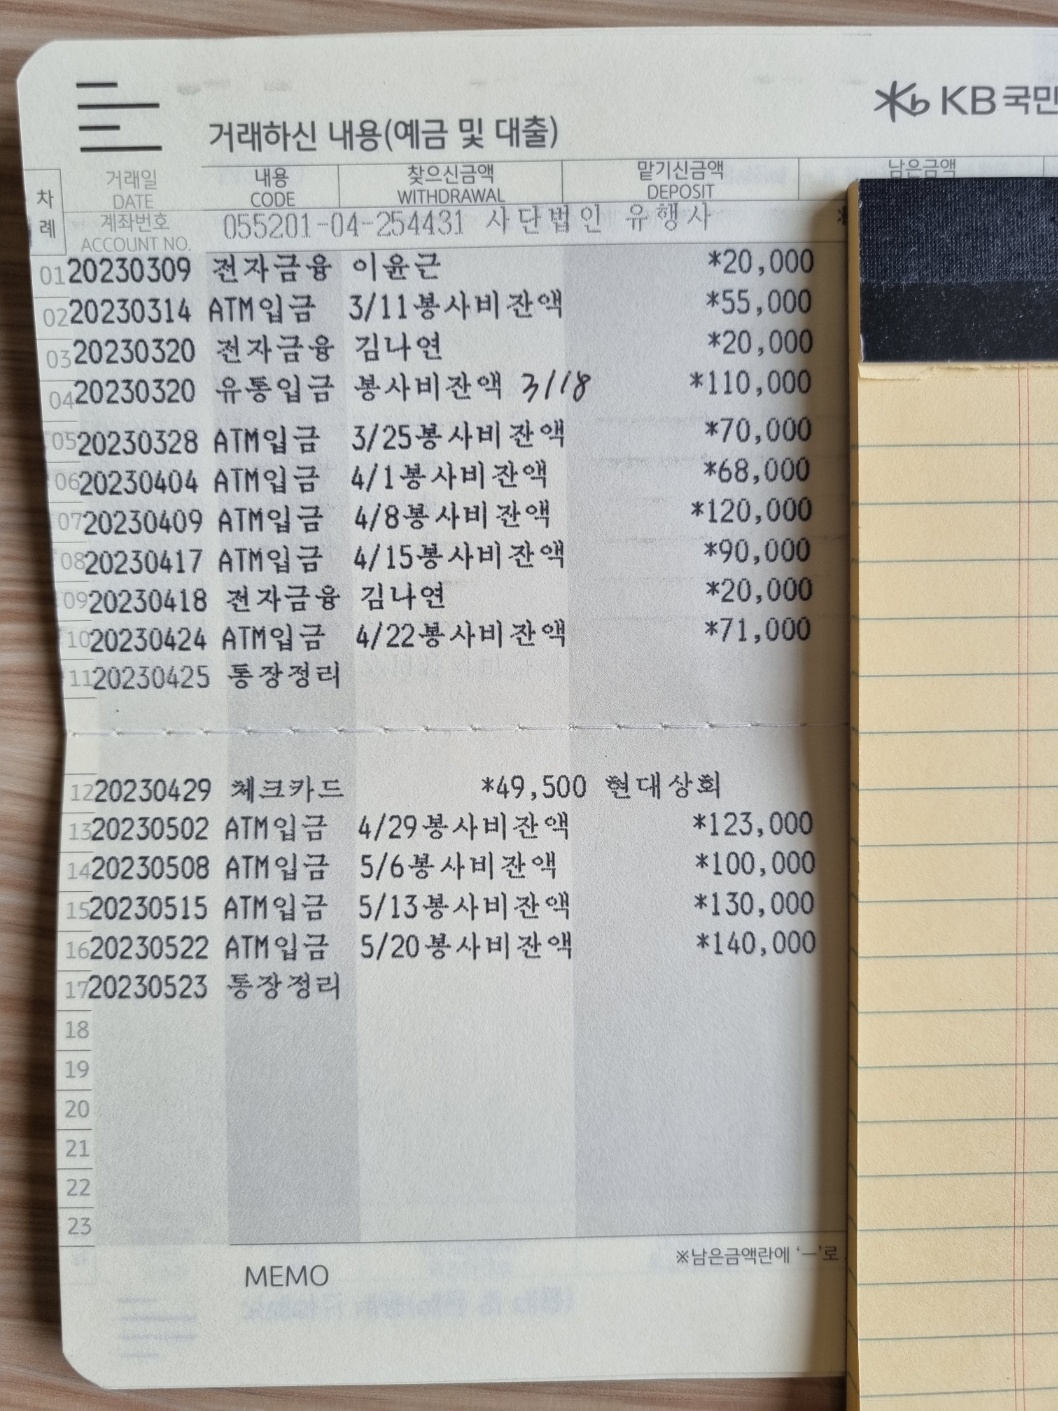 KB국민
거래하신 내용(예금 및 대출)
차례 거래일 DATE 내용 CODE 찾으신금액 WITHDRAWAL 맡기신금액 DEPOSIT 남은금액
계좌번호 ACCOUNT NO. 055201-04-254431 사단법인 유행사
01 20230309 전자금융 이윤근 *20,000
02 20230314 ATM입금 3/11봉사비잔액 *55,000
03 20230320 전자금융 김나연 *20,000
04 20230320 유통입금 봉사비잔액 3/18 *110,000
05 20230328 ATM입금 3/25봉사비잔액 *70,000
06 20230404 ATM입금 4/1봉사비잔액 *68,000
07 20230409 ATM입금 4/8봉사비잔액 *120,000
08 20230417 ATM입금 4/15봉사비잔액 *90,000
09 20230418 전자금융 김나연 *20,000
10 20230424 ATM입금 4/22봉사비잔액 *71,000
11 20230425 통장정리
12 20230429 체크카드 *49,500 현대상회
13 20230502 ATM입금 4/29봉사비잔액 *123,000
14 20230508 ATM입금 5/6봉사비잔액 *100,000
15 20230515 ATM입금 5/13봉사비잔액 *130,000
16 20230522 ATM입금 5/20봉사비잔액 *140,000
17 20230523 통장정리
18
19
20
21
22
23
※남은금액란에 '—'로
MEMO